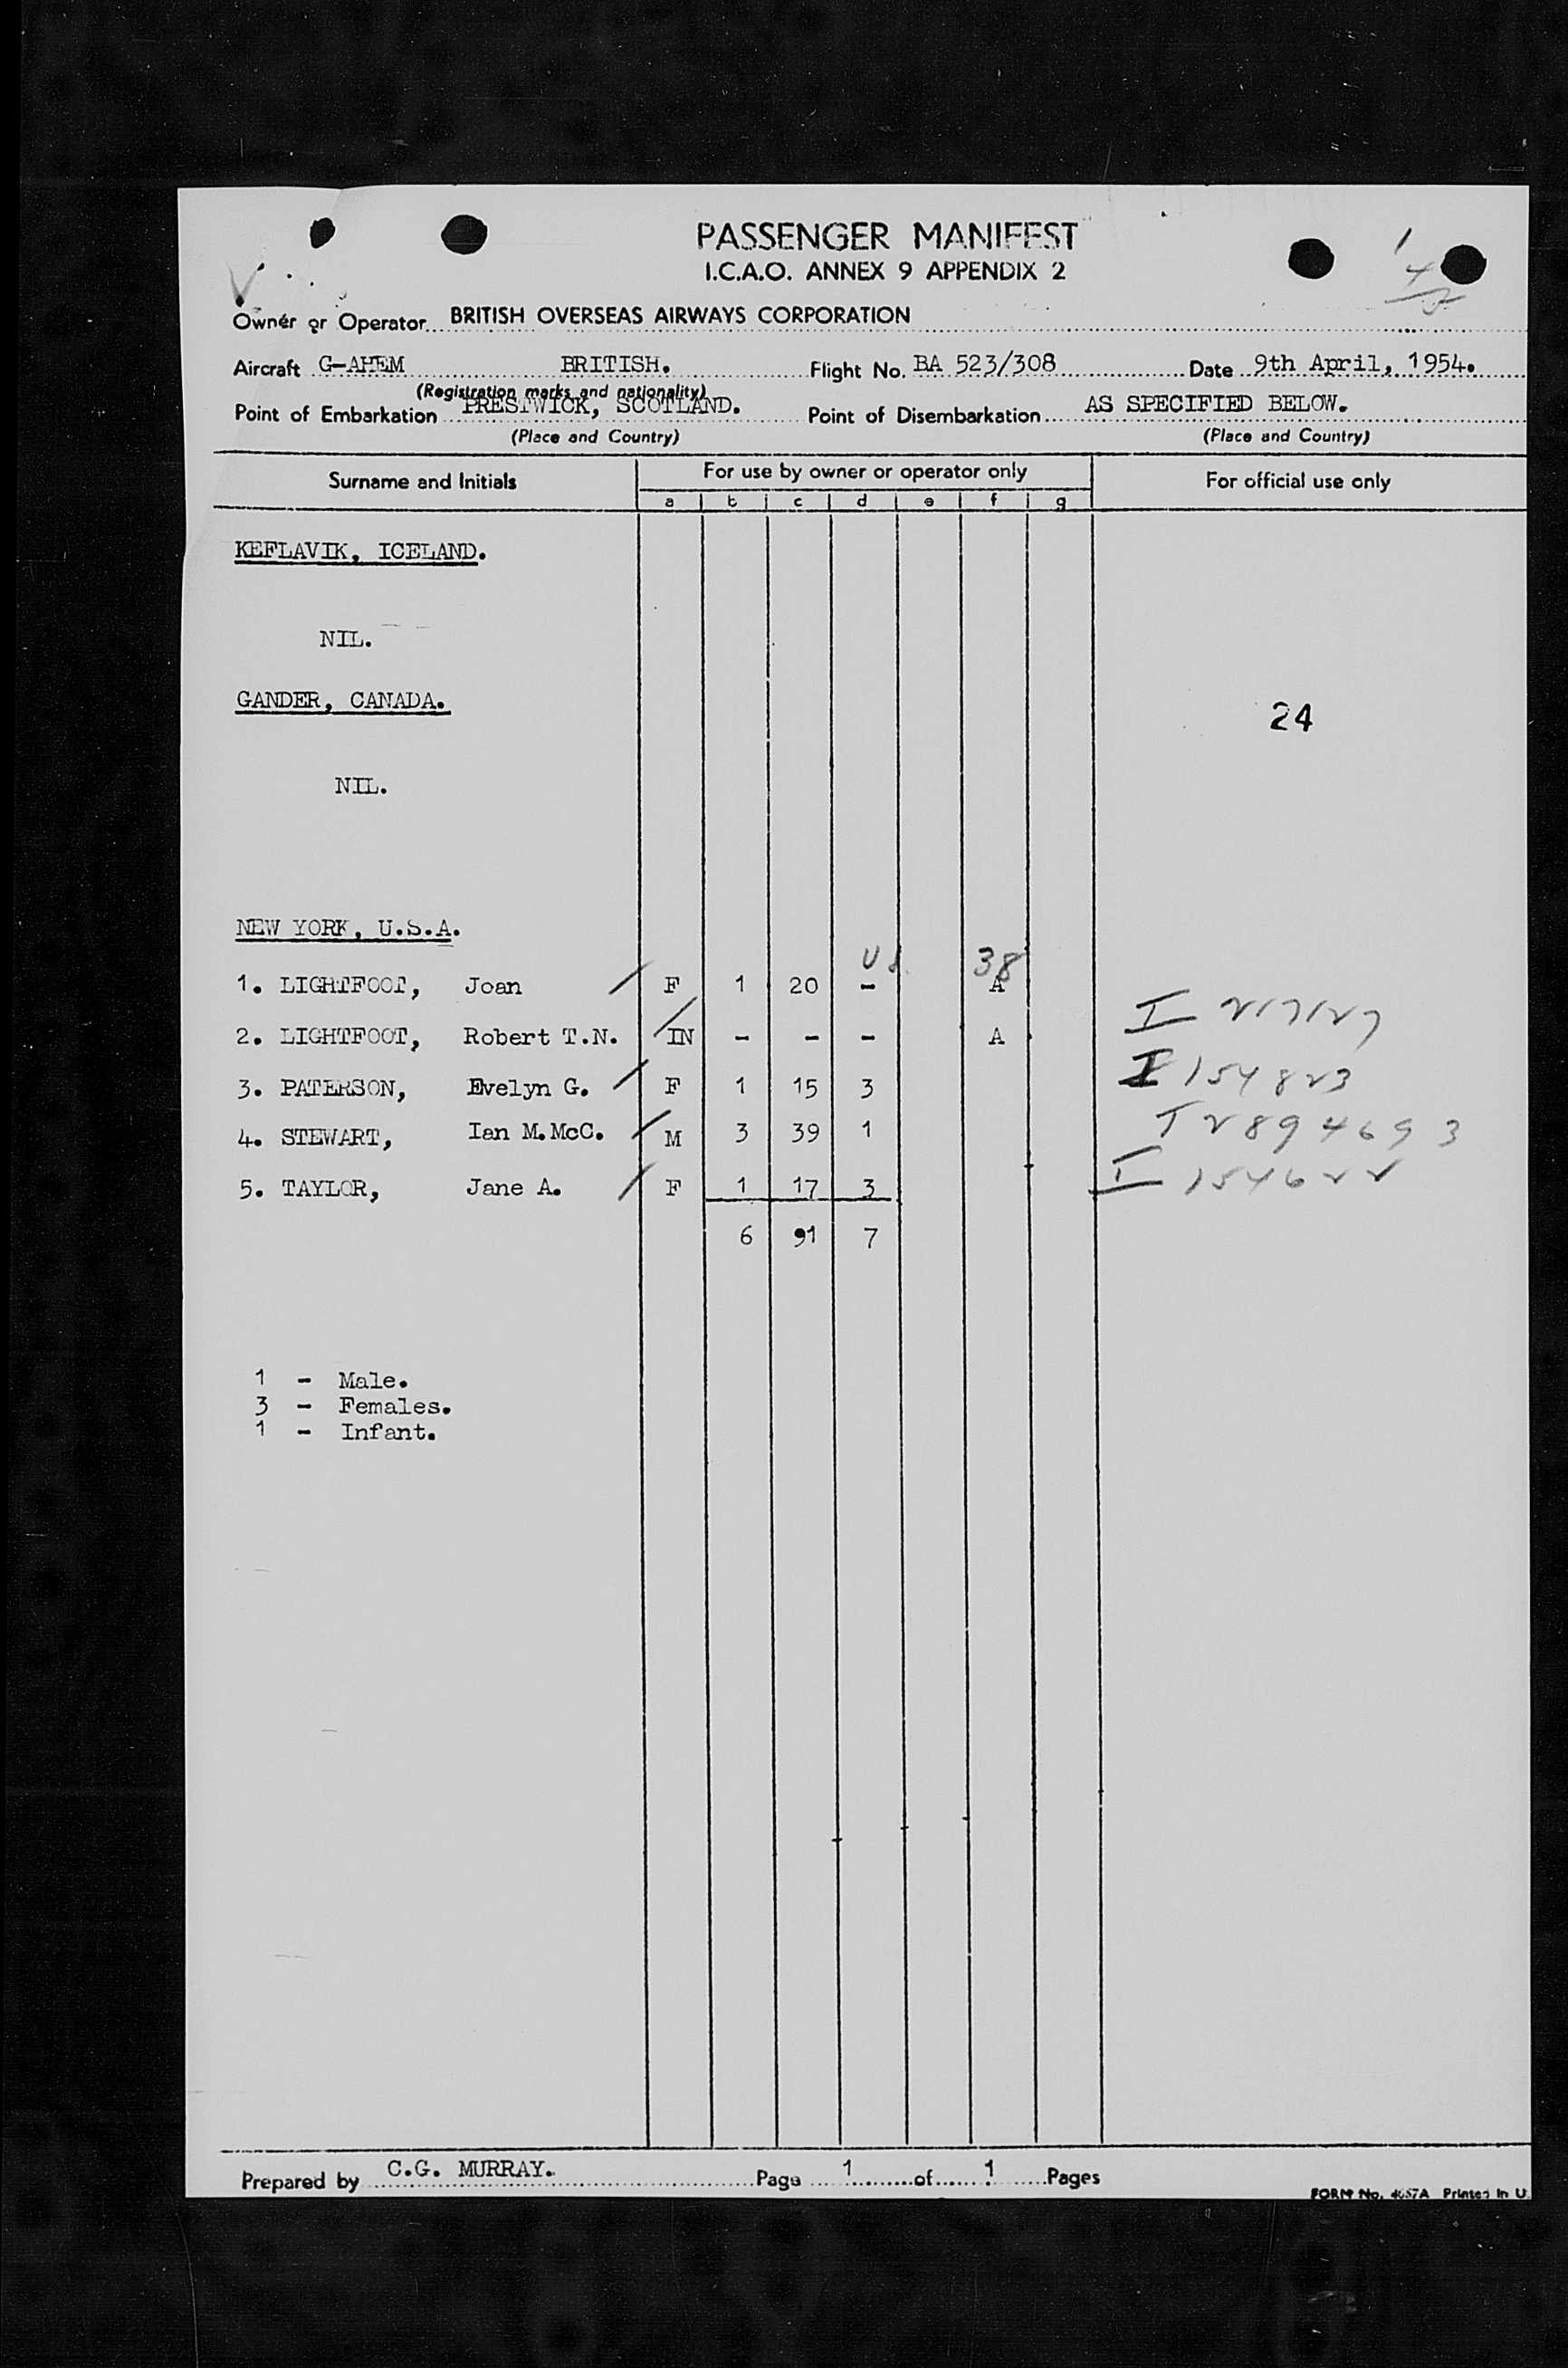 PASSENGER MANIFEST
I.C.A.O. ANNEX 9 APPENDIX 2
Owner or Operator BRITISH OVERSEAS AIRWAYS CORPORATION
Aircraft G-AHEM BRITISH. Flight No. BA 523/308 Date 9th April, 1954.
(Registration marks and nationality)
Point of Embarkation PRESTWICK, SCOTLAND. Point of Disembarkation AS SPECIFIED BELOW.
(Place and Country) (Place and Country)
Surname and Initials For use by owner or operator only For official use only
a b c d e f g
KEFLAVIK, ICELAND.
NIL.
GANDER, CANADA.
24
NIL.
NEW YORK, U.S.A.
US 38
1. LIGHTFOOT, Joan / F 1 20 - A
2. LIGHTFOOT, Robert T.N. / IN - - - A I 217127
3. PATERSON, Evelyn G. / F 1 15 3 I 154823
4. STEWART, Ian M.McC. / M 3 39 1 T 2894693
5. TAYLOR, Jane A. / F 1 17 3 I 154622
6 91 7
1 - Male.
3 - Females.
1 - Infant.
Prepared by C.G. MURRAY. Page 1 of 1 Pages
FORM No. 4057A Printed in U